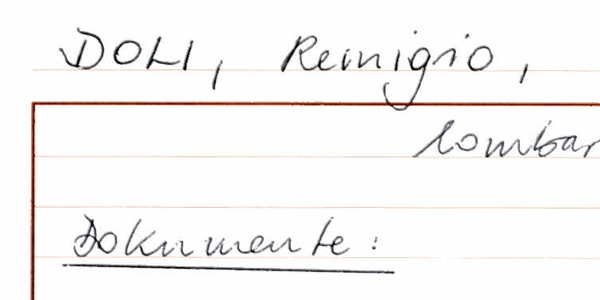 DOLI, Remigio,
lombar
Dokumente: